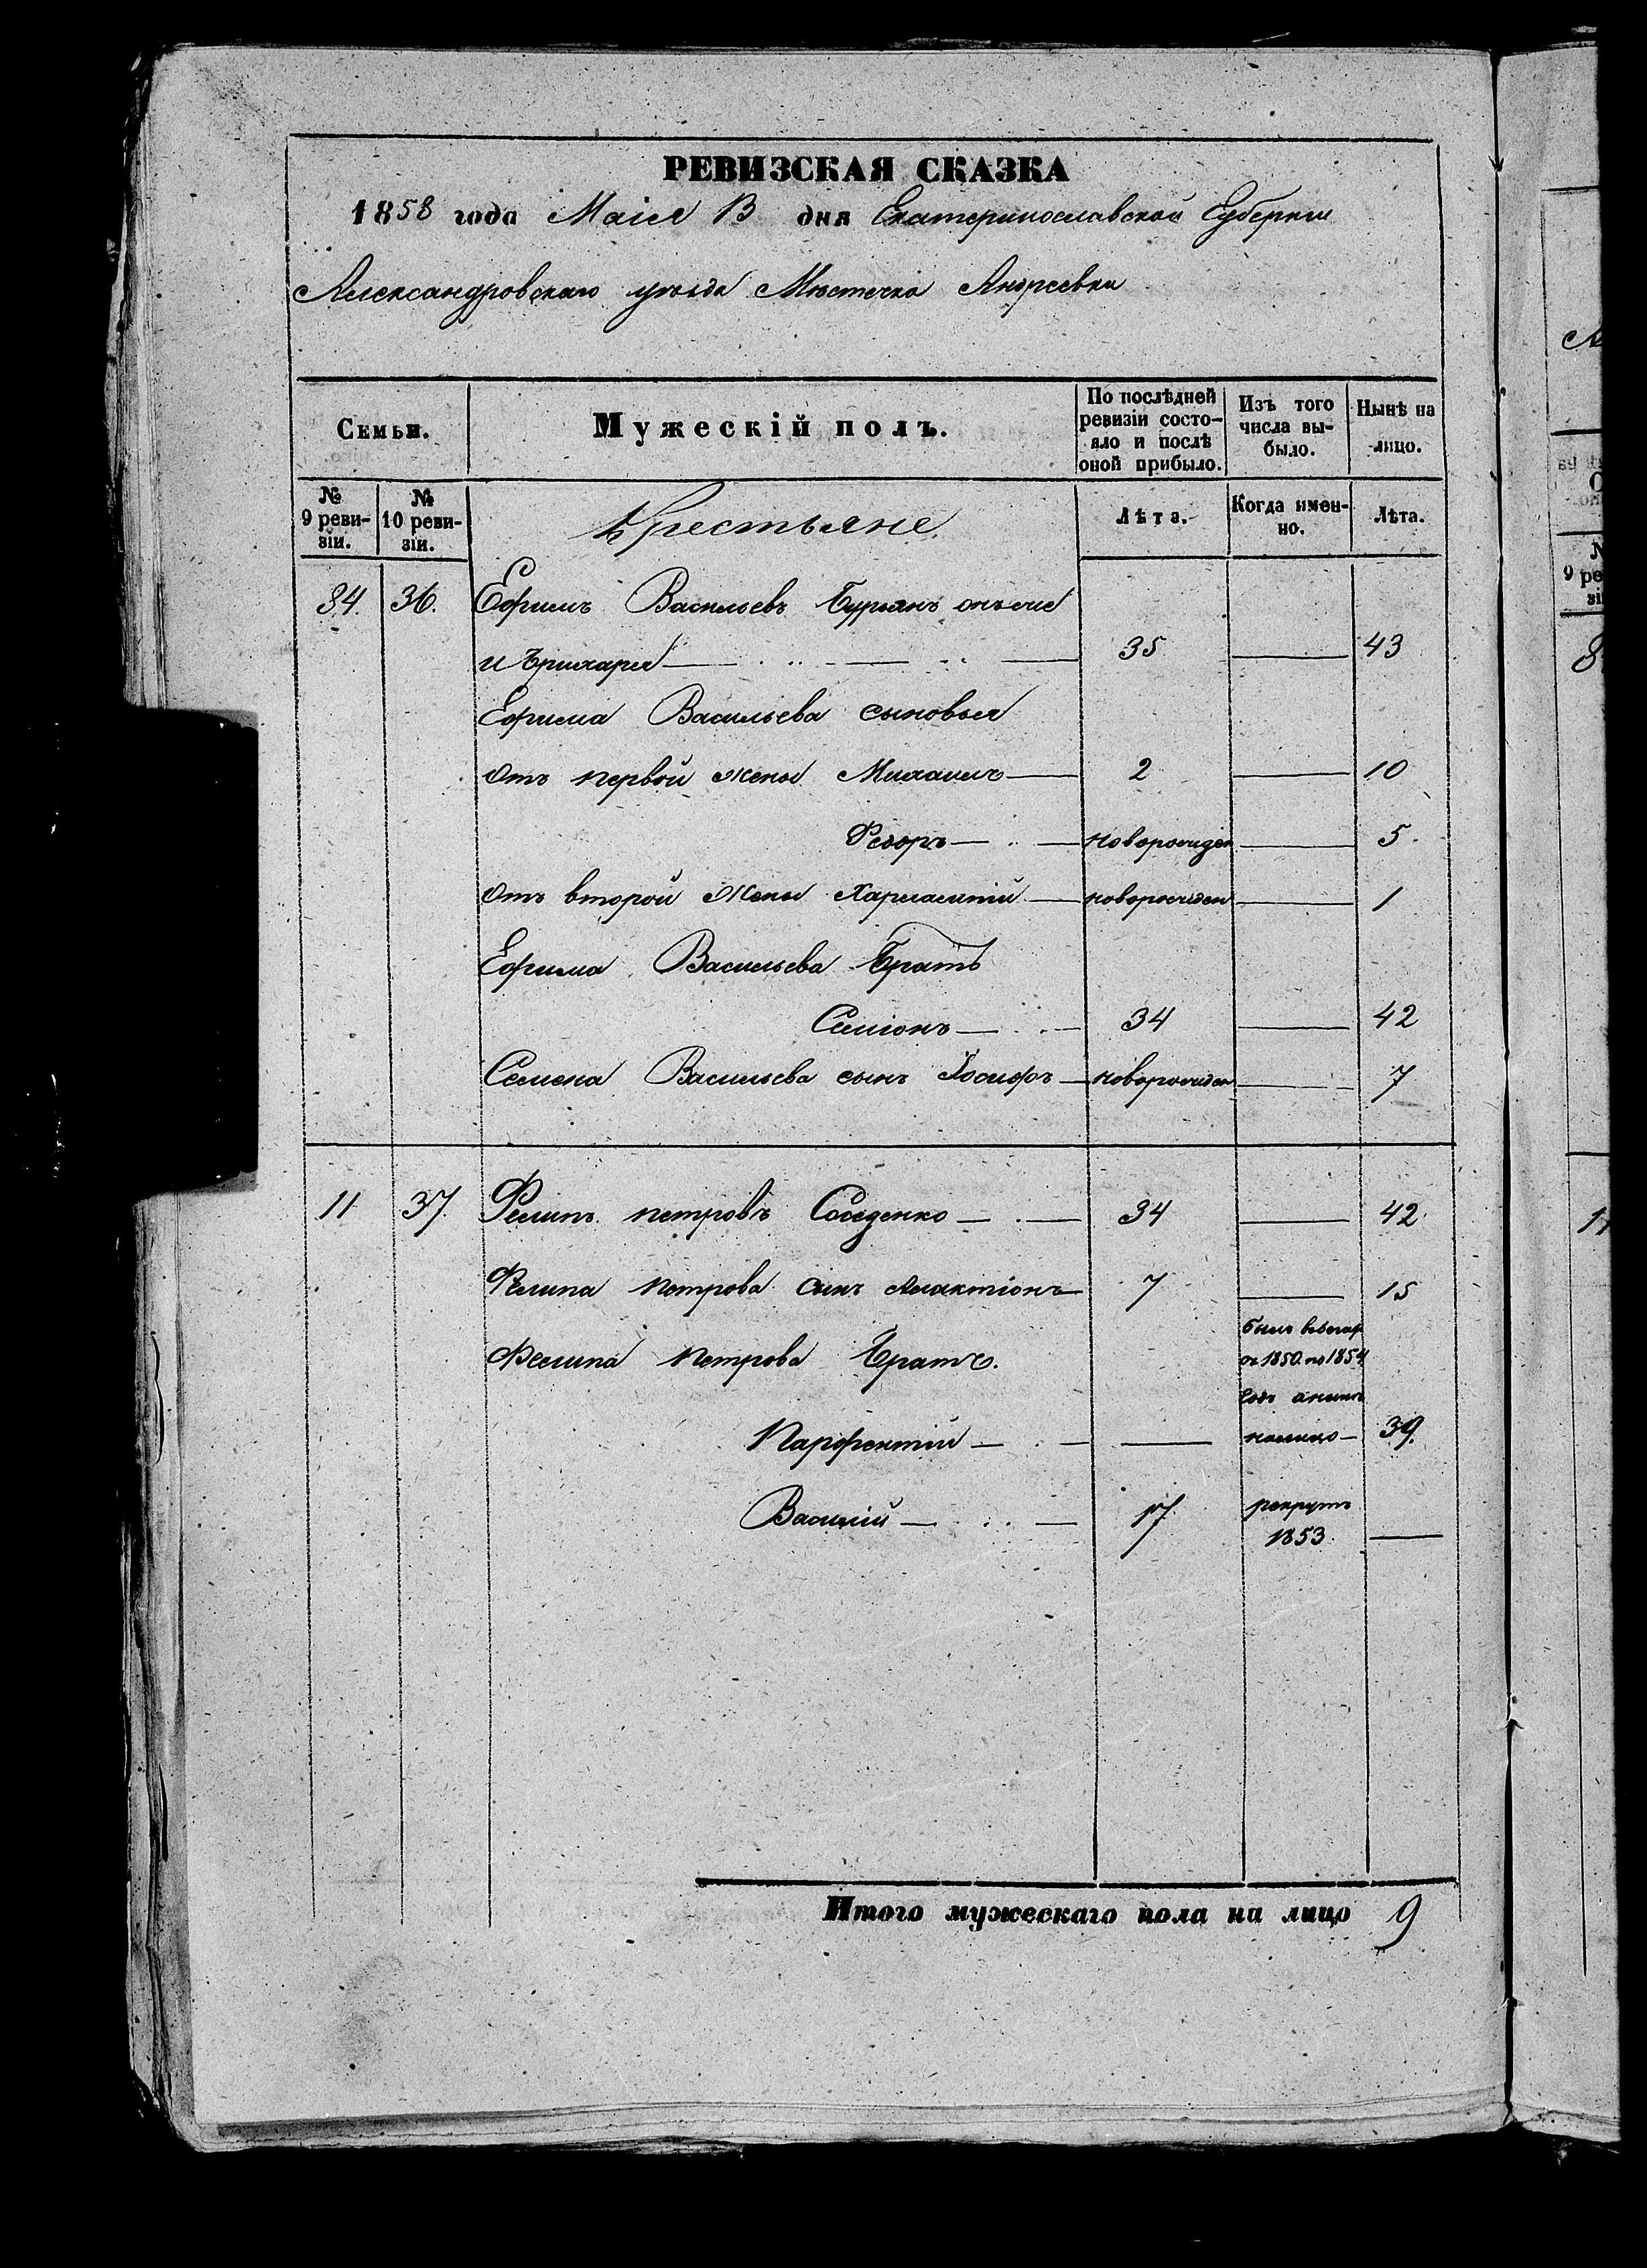 РЕВИЗСКАЯ СКАЗКА
1858 года Маія 13 дня Екатеринославской Губерніи
Александровскаго уѣзда Мѣстечка Андреевки
Семьи.
Мужескій полъ.
По послѣдней ревизіи состо-
яло и послѣ
оной прибыло.
Изъ того
числа вы-
было.
Нынѣ на
лицо.
№
9 реви-
зіи.
№
10 реви-
зіи.
Крестьяне
Лѣта.
Когда имен-
но.
Лѣта.
84. 36. Ефимъ Васильевъ Бурьянъ онъ же
и 35 — 43
Ефима Васильева сыновья
Отъ первой жены Михаилъ — 2 — 10
Федоръ — новорожден — 5.
Отъ второй жены Харлампій — новорожден — 1
Ефима Васильева Братъ
Семіонъ — 34 — 42
Семена Васильева сынъ Іосифъ — новорожден — 7
11 37 Филипъ петровъ — 34 — 42
Филипа Петрова сынъ Галактіонъ — 7 — 15
Филипа Петрова Братъ.
былъ въ бегах
съ 1850. по 1854
годъ а нынѣ
Парфентій — — налицо — 39.
Василій — 17 рекрутъ
1853. —
Итого мужескаго пола на лицо 9
№
9 ре
зі
8
11